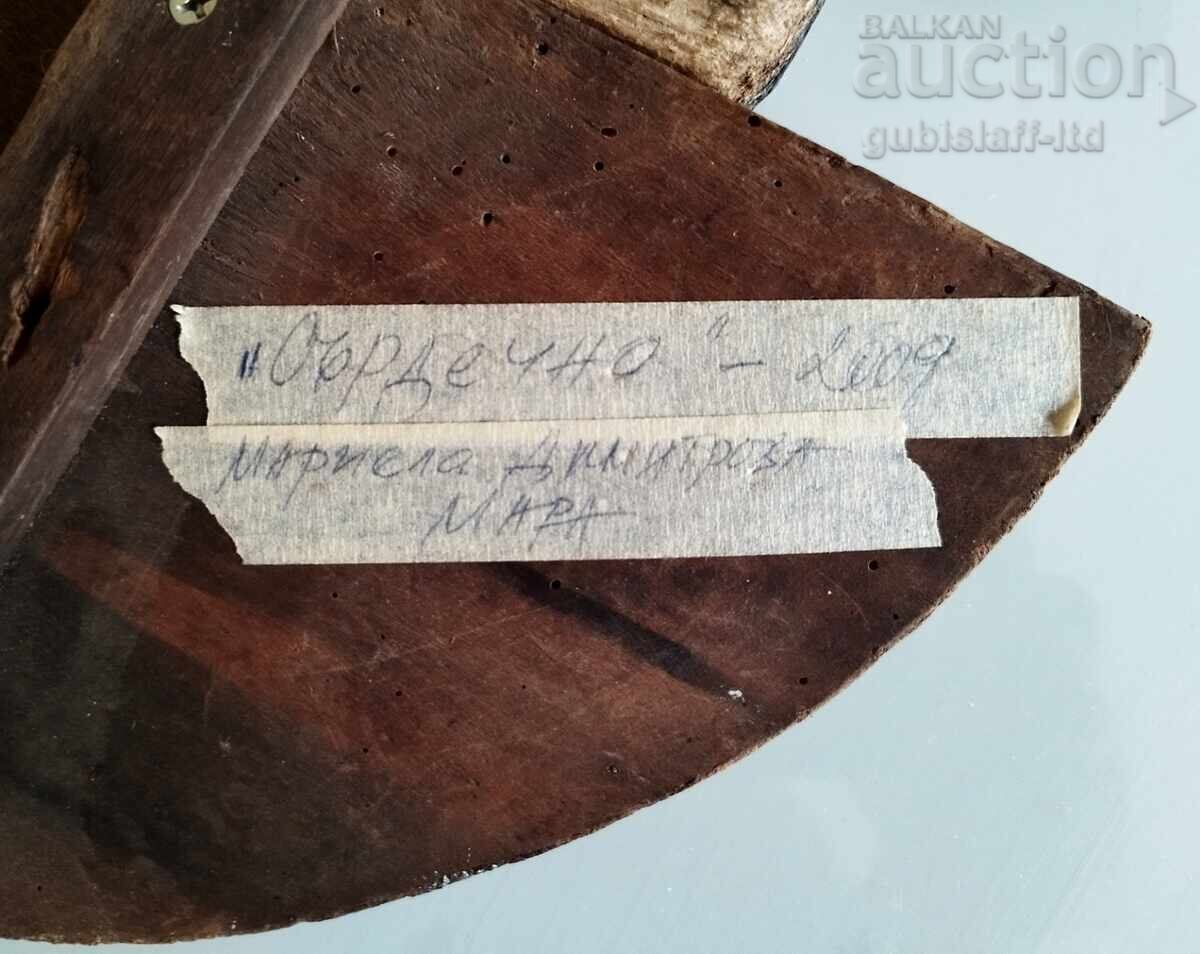 BALKAN
auction
gubislaff-ltd
„Сърдечно" - 2009
Мариела Димитрова
МАРА